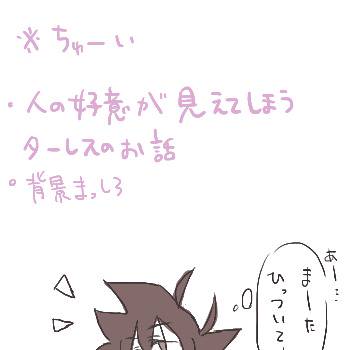 ※ ちゅーい
・人の好意が見えてしまう
ターレスのお話
。背景まっしろ
あー…
まーた
ひっついて